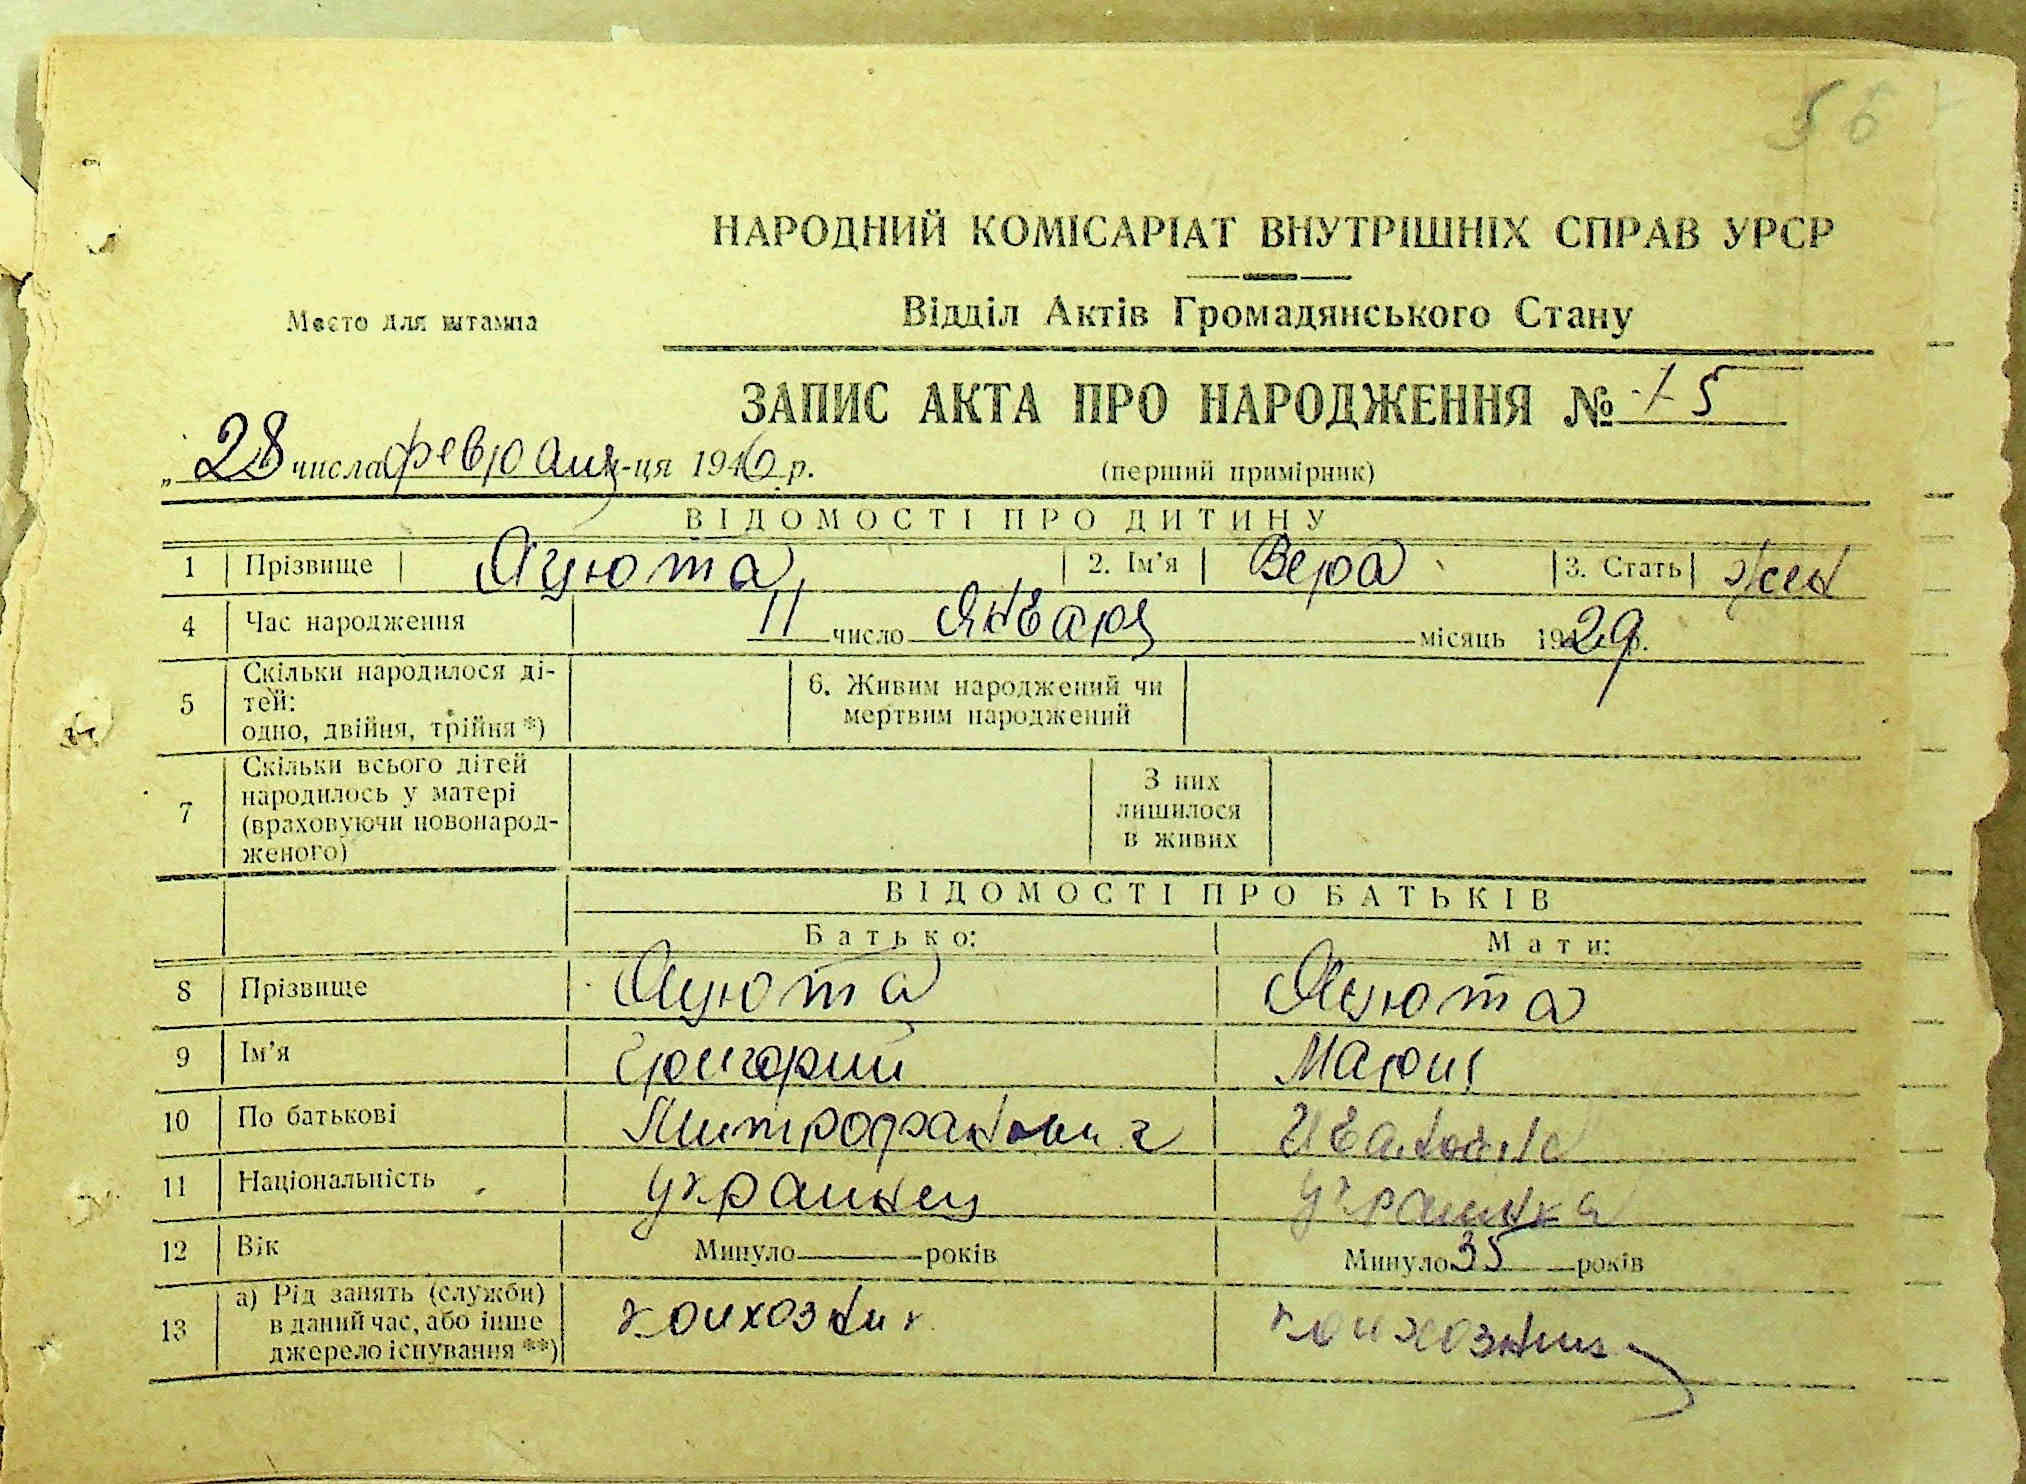 56
НАРОДНИЙ КОМІСАРІАТ ВНУТРІШНІХ СПРАВ УРСР
Место для штампа
Відділ Актів Громадянського Стану
ЗАПИС АКТА ПРО НАРОДЖЕННЯ № 15
„ 28 числа февраля -ця 1946 р.
(перший примірник)
ВІДОМОСТІ ПРО ДИТИНУ
1 Прізвище Яцюта 2. Ім'я Вера 3. Стать жен
4 Час народження 11 число Января місяць 1929 р.
5 Скільки народилося ді-
тей:
одно, двійня, трійня *)
6. Живим народжений чи
мертвим народжений
7 Скільки всього дітей
народилось у матері
(враховуючи новонарод-
женого)
З них
лишилося
в живих
ВІДОМОСТІ ПРО БАТЬКІВ
Батько: Мати:
8 Прізвище Яцюта Яцюта
9 Ім'я Григорий Мария
10 По батькові Митрофанович Ивановна
11 Національність украинец украинка
12 Вік Минуло років Минуло 35 років
13 а) Рід занять (служби)
в даний час, або інше
джерело існування **)
колхозник колхозница